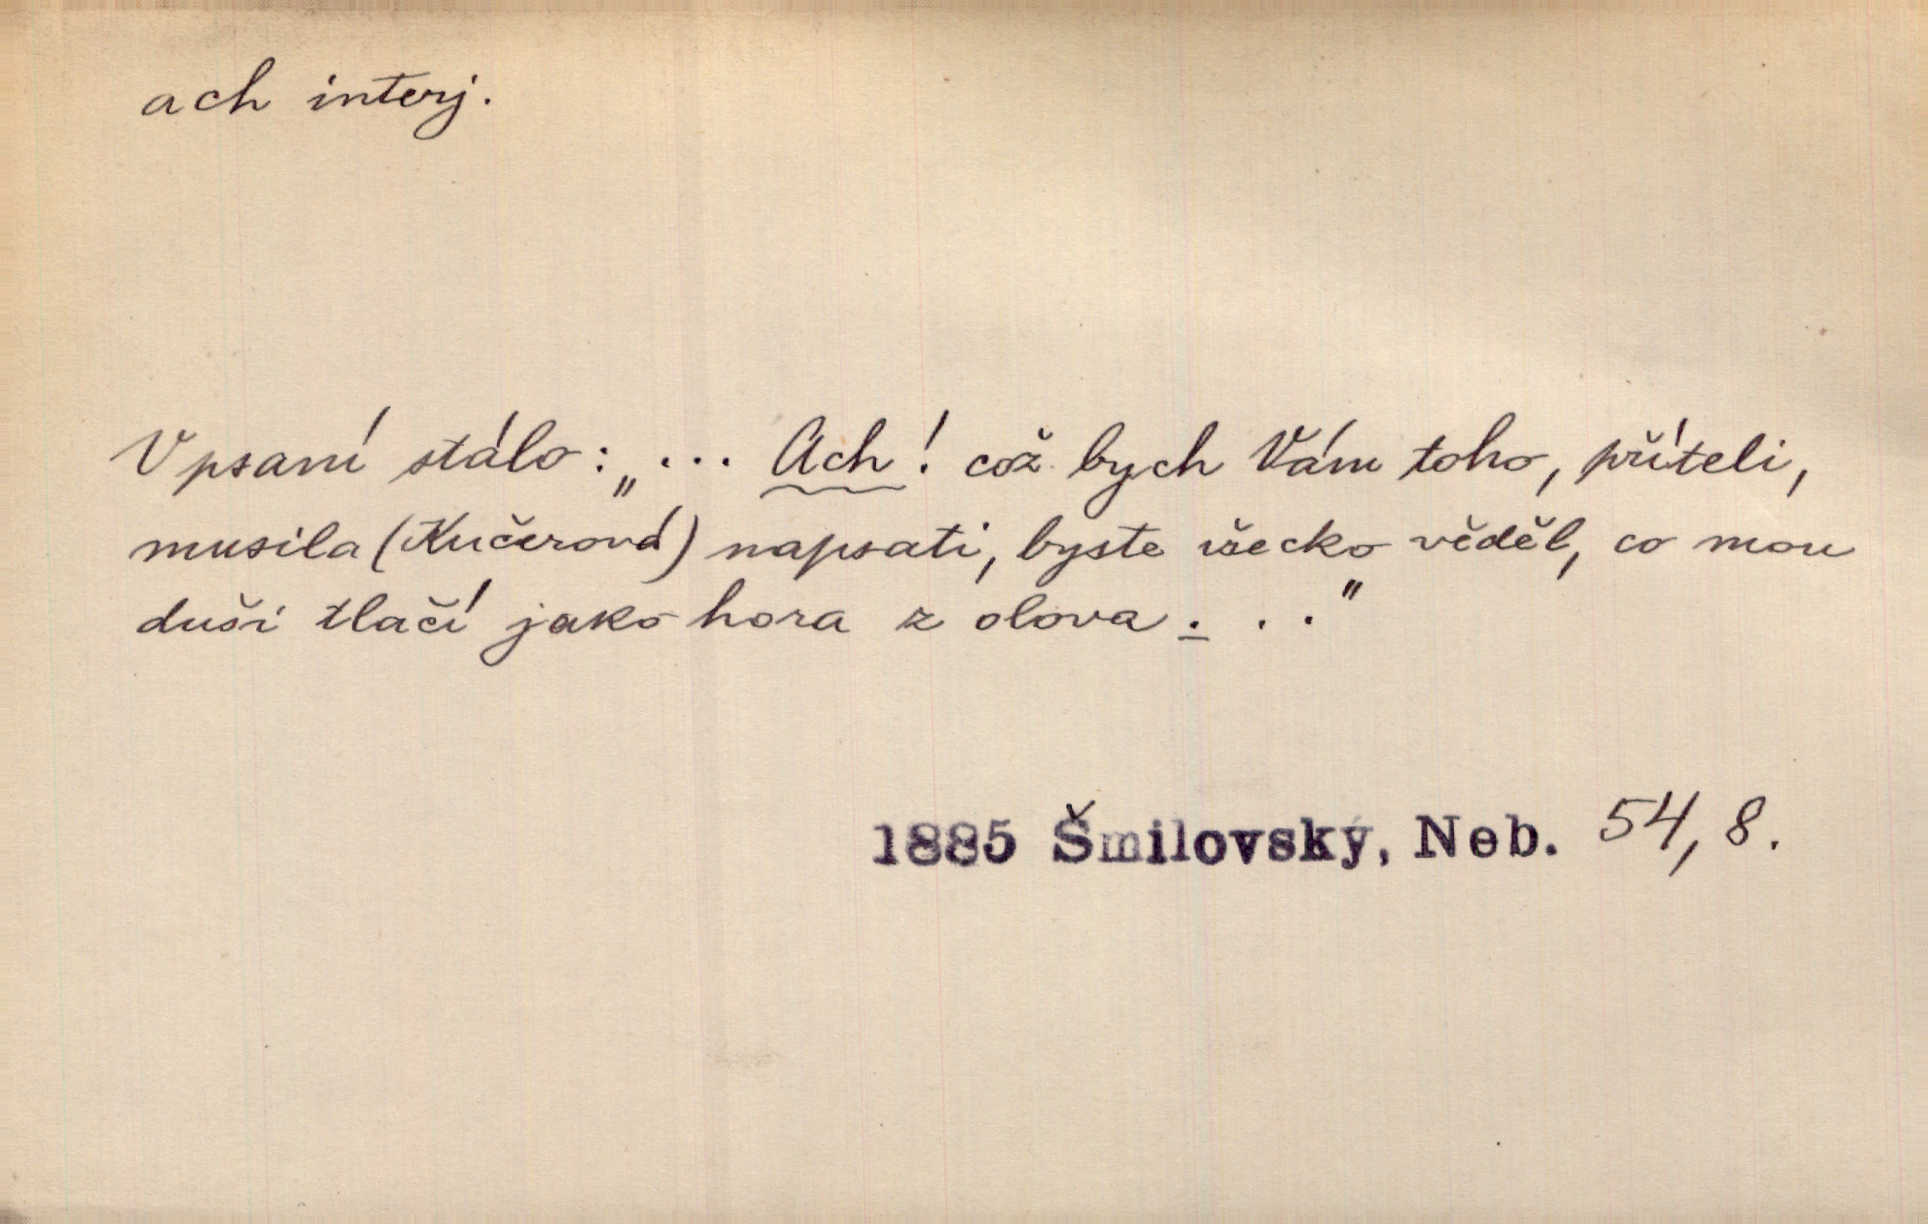 ach interj.
V psaní stálo: „... Ach! což bych Vám toho, příteli,
musila (Kučerová) napsati, byste všecko věděl, co mou
duši tlačí jako hora z olova . . ."
1885 Šmilovský, Neb. 54, 8.